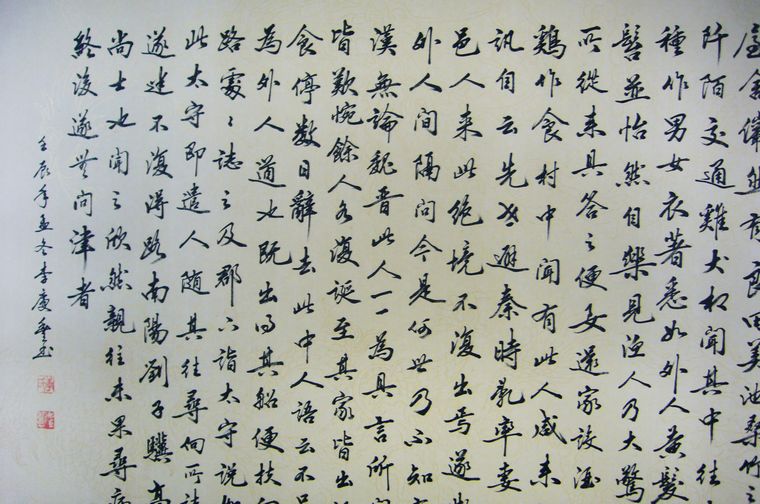 屋舍儼然有良田美池桑竹之
阡陌交通雞犬相聞其中往
種作男女衣著悉如外人黃髮
髫並怡然自樂見漁人乃大驚
所從來具答之便要還家設酒
鷄作食村中聞有此人咸來
訊自云先世避秦時亂率妻
邑人來此絕境不復出焉遂
外人間隔問今是何世乃不知有
漢無論魏晉此人一一為具言所聞
皆歎惋餘人各復延至其家皆出
食停數日辭去此中人語云不足
為外人道也既出得其船便扶向
路處々誌之及郡下詣太守說如
此太守即遣人隨其往尋向所誌
遂迷不復得路南陽劉子驥高
尚士也聞之欣然親往未果尋病
終後遂無問津者
壬辰年孟冬李慶